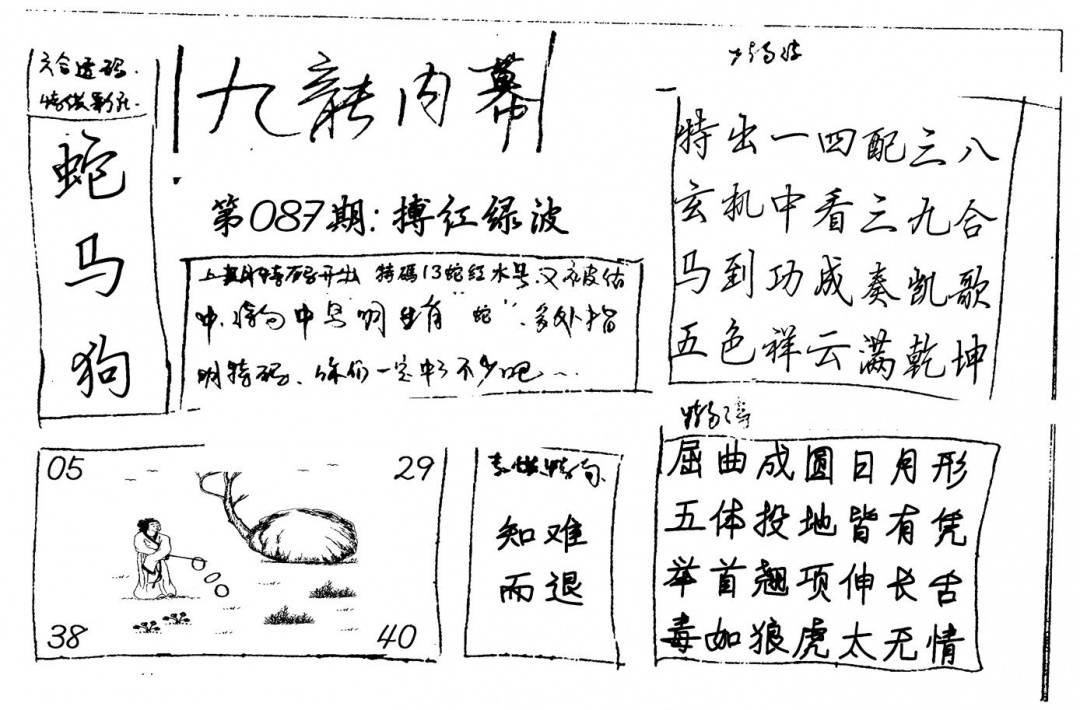 六合透码
蛇
马
狗
九龍内幕
第087期:搏红绿波
上期特码开出 特碼13蛇红水号又被估
中,诗句中号明生肖“蛇”,多处指
明特码,你们一定中了不少吧~
特出一四配三八
玄机中看三九合
马到功成奏凯歌
五色祥云满乾坤
05
29
38
40
知难
而退
屈曲成圆日月形
五体投地皆有凭
举首翘项伸长舌
毒如狼虎太无情